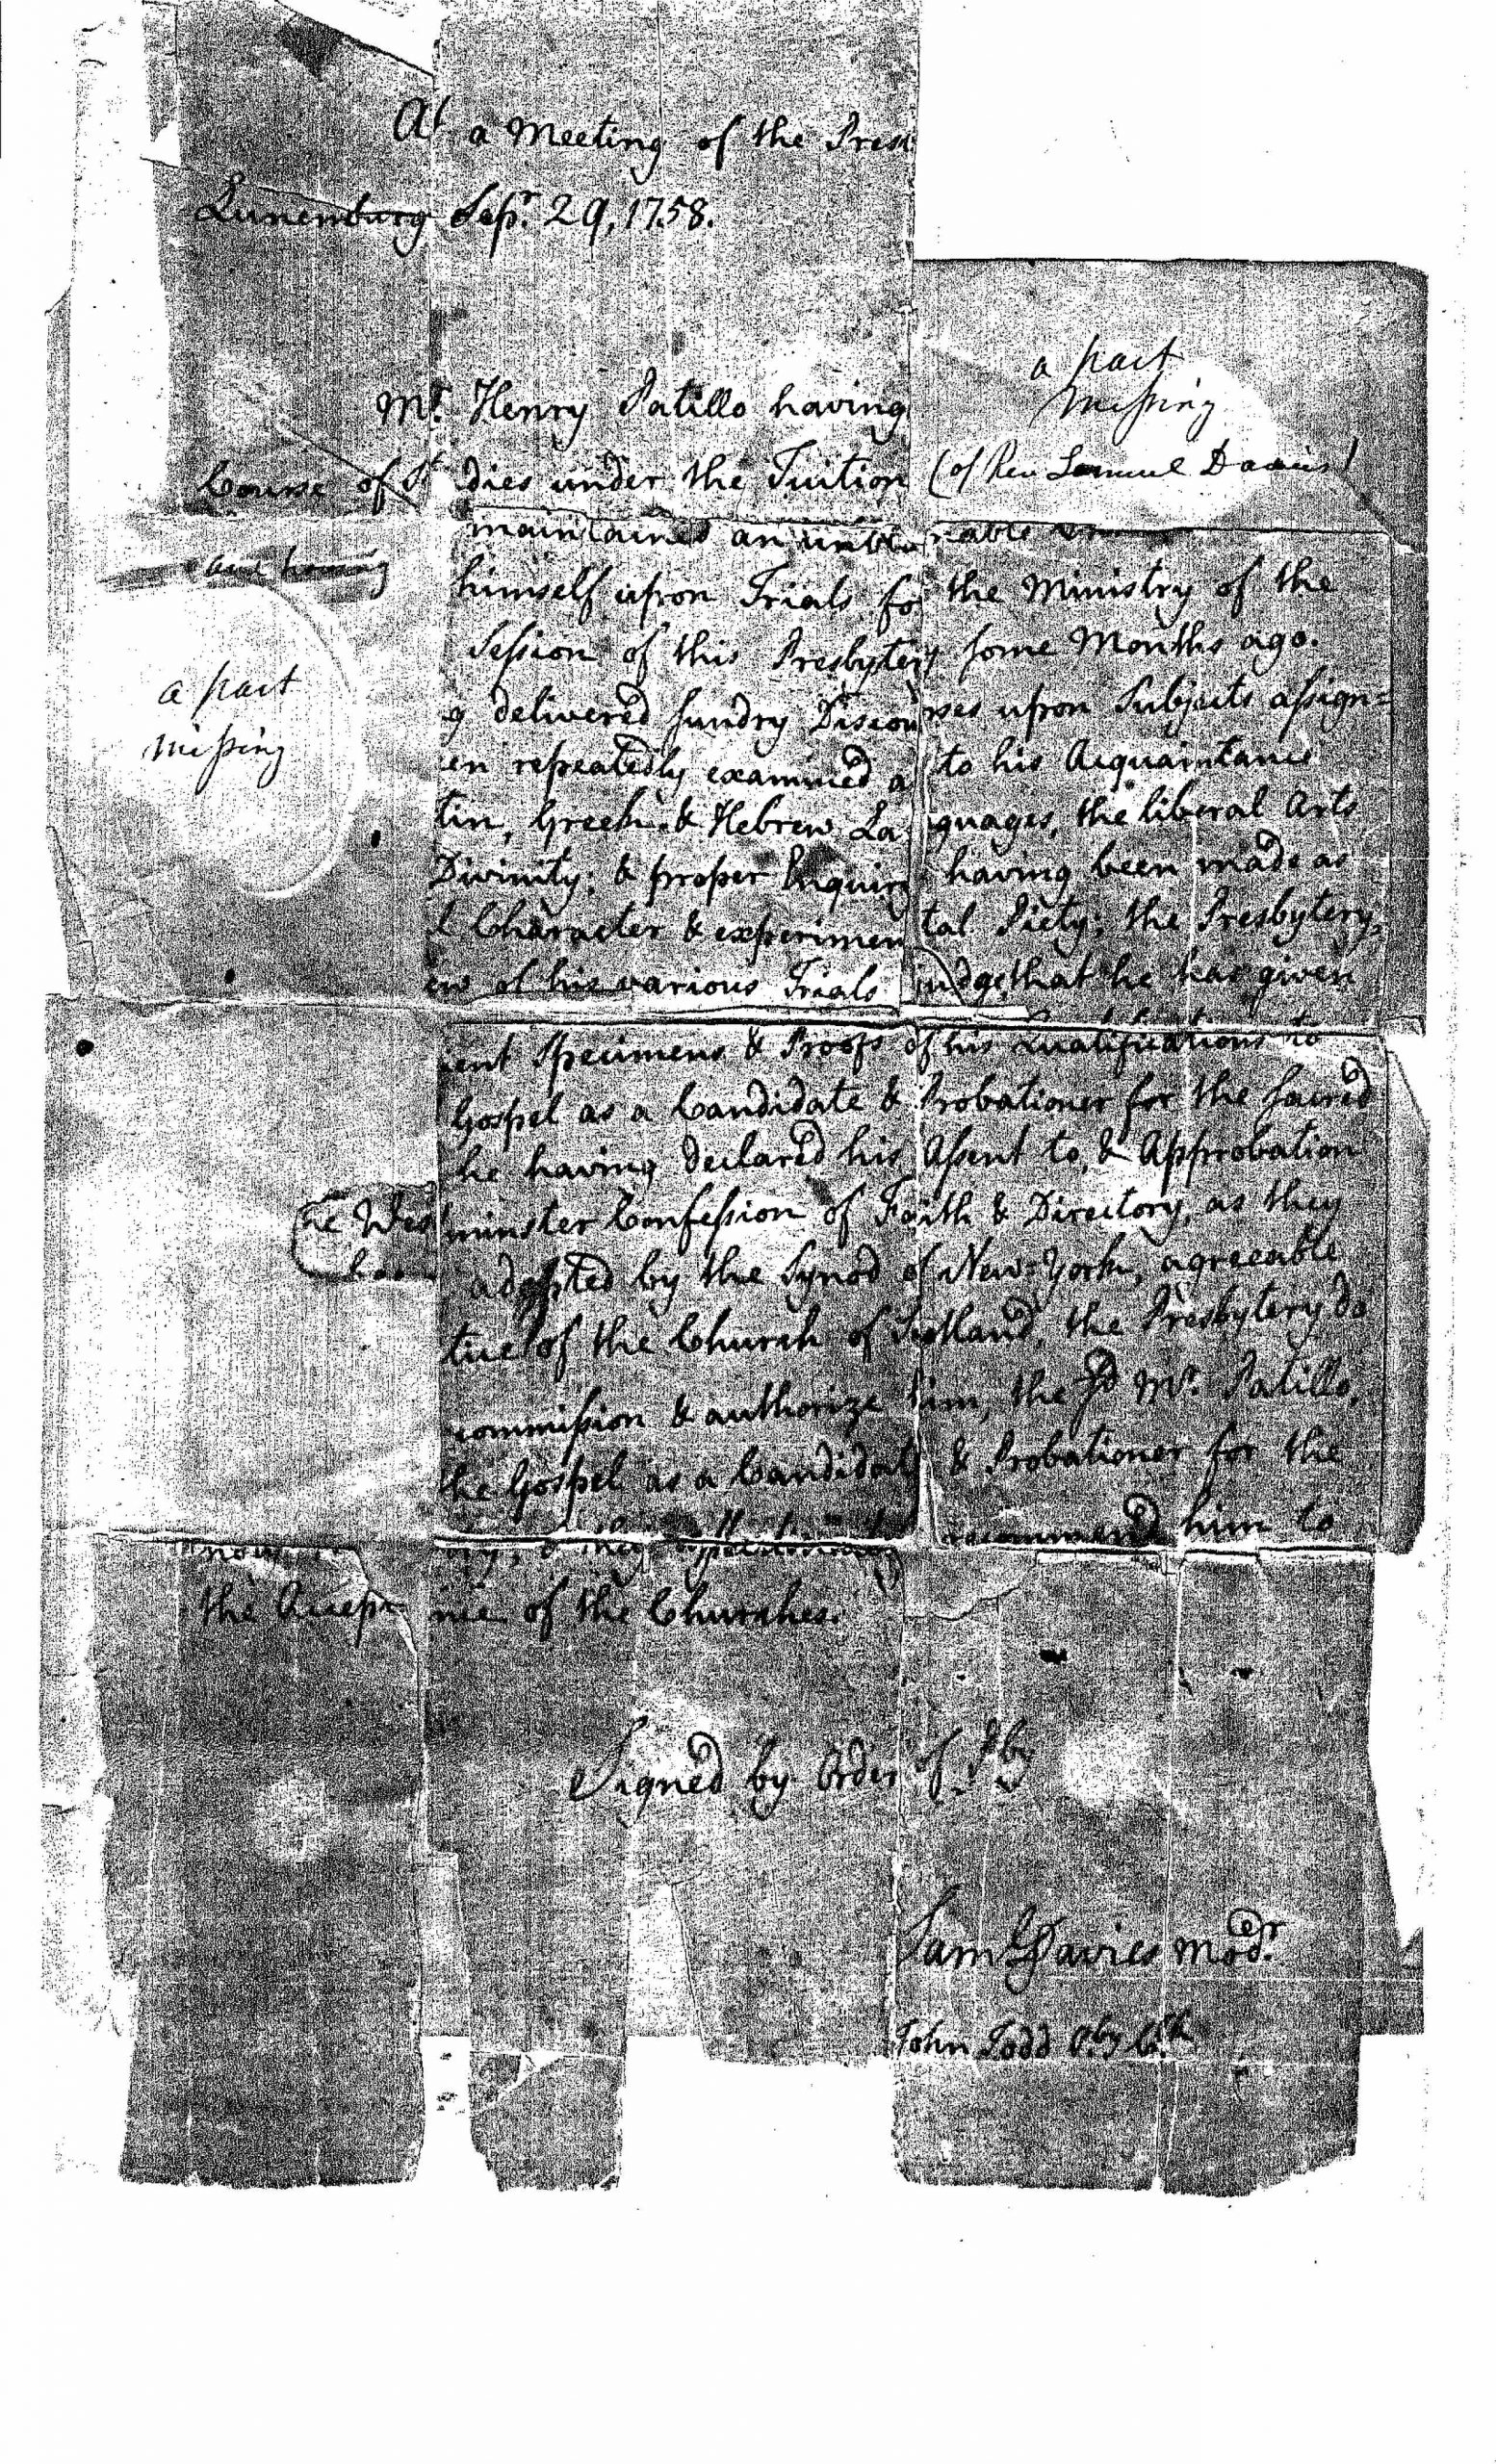 At a Meeting of the Pres
Lunenburg Sepr. 29, 1758.
a part
missing
Mr. Henry Patillo having
Course of St dies under the Tuition (of Rev Samuel Davies)
maintained an unbla able
and having
himself upon Trials fo the Ministry of the
Session of this Presbytery some Months ago.
a part
missing
g delivered sundry Discourses upon Subjects assign=
en repeatedly examined a to his Acquaintance
tin, Greek & Hebrew La guages, the liberal Arts
Divinity; & proper Enquiry having been made as
l Character & experimen tal Piety; the Presbytery,
ew of his various Trials judge that he has given
ient Specimens & Proofs of his Qualifications to
Gospel as a Candidate & Probationer for the sacred
he having declared his Assent to, & Approbation
he Wes minster Confession of Faith & Directory, as they
adopted by the Synod of New-York, agreeable
tice of the Church of Scotland, the Presbytery do
commission & authorize him, the sd Mr. Patillo,
the Gospel as a Candidate & Probationer for the
ry; & they recommend him to
the Accep nce of the Churches.
Signed by Order of Pby
Saml Davies Modr.
John Todd Pby Clk